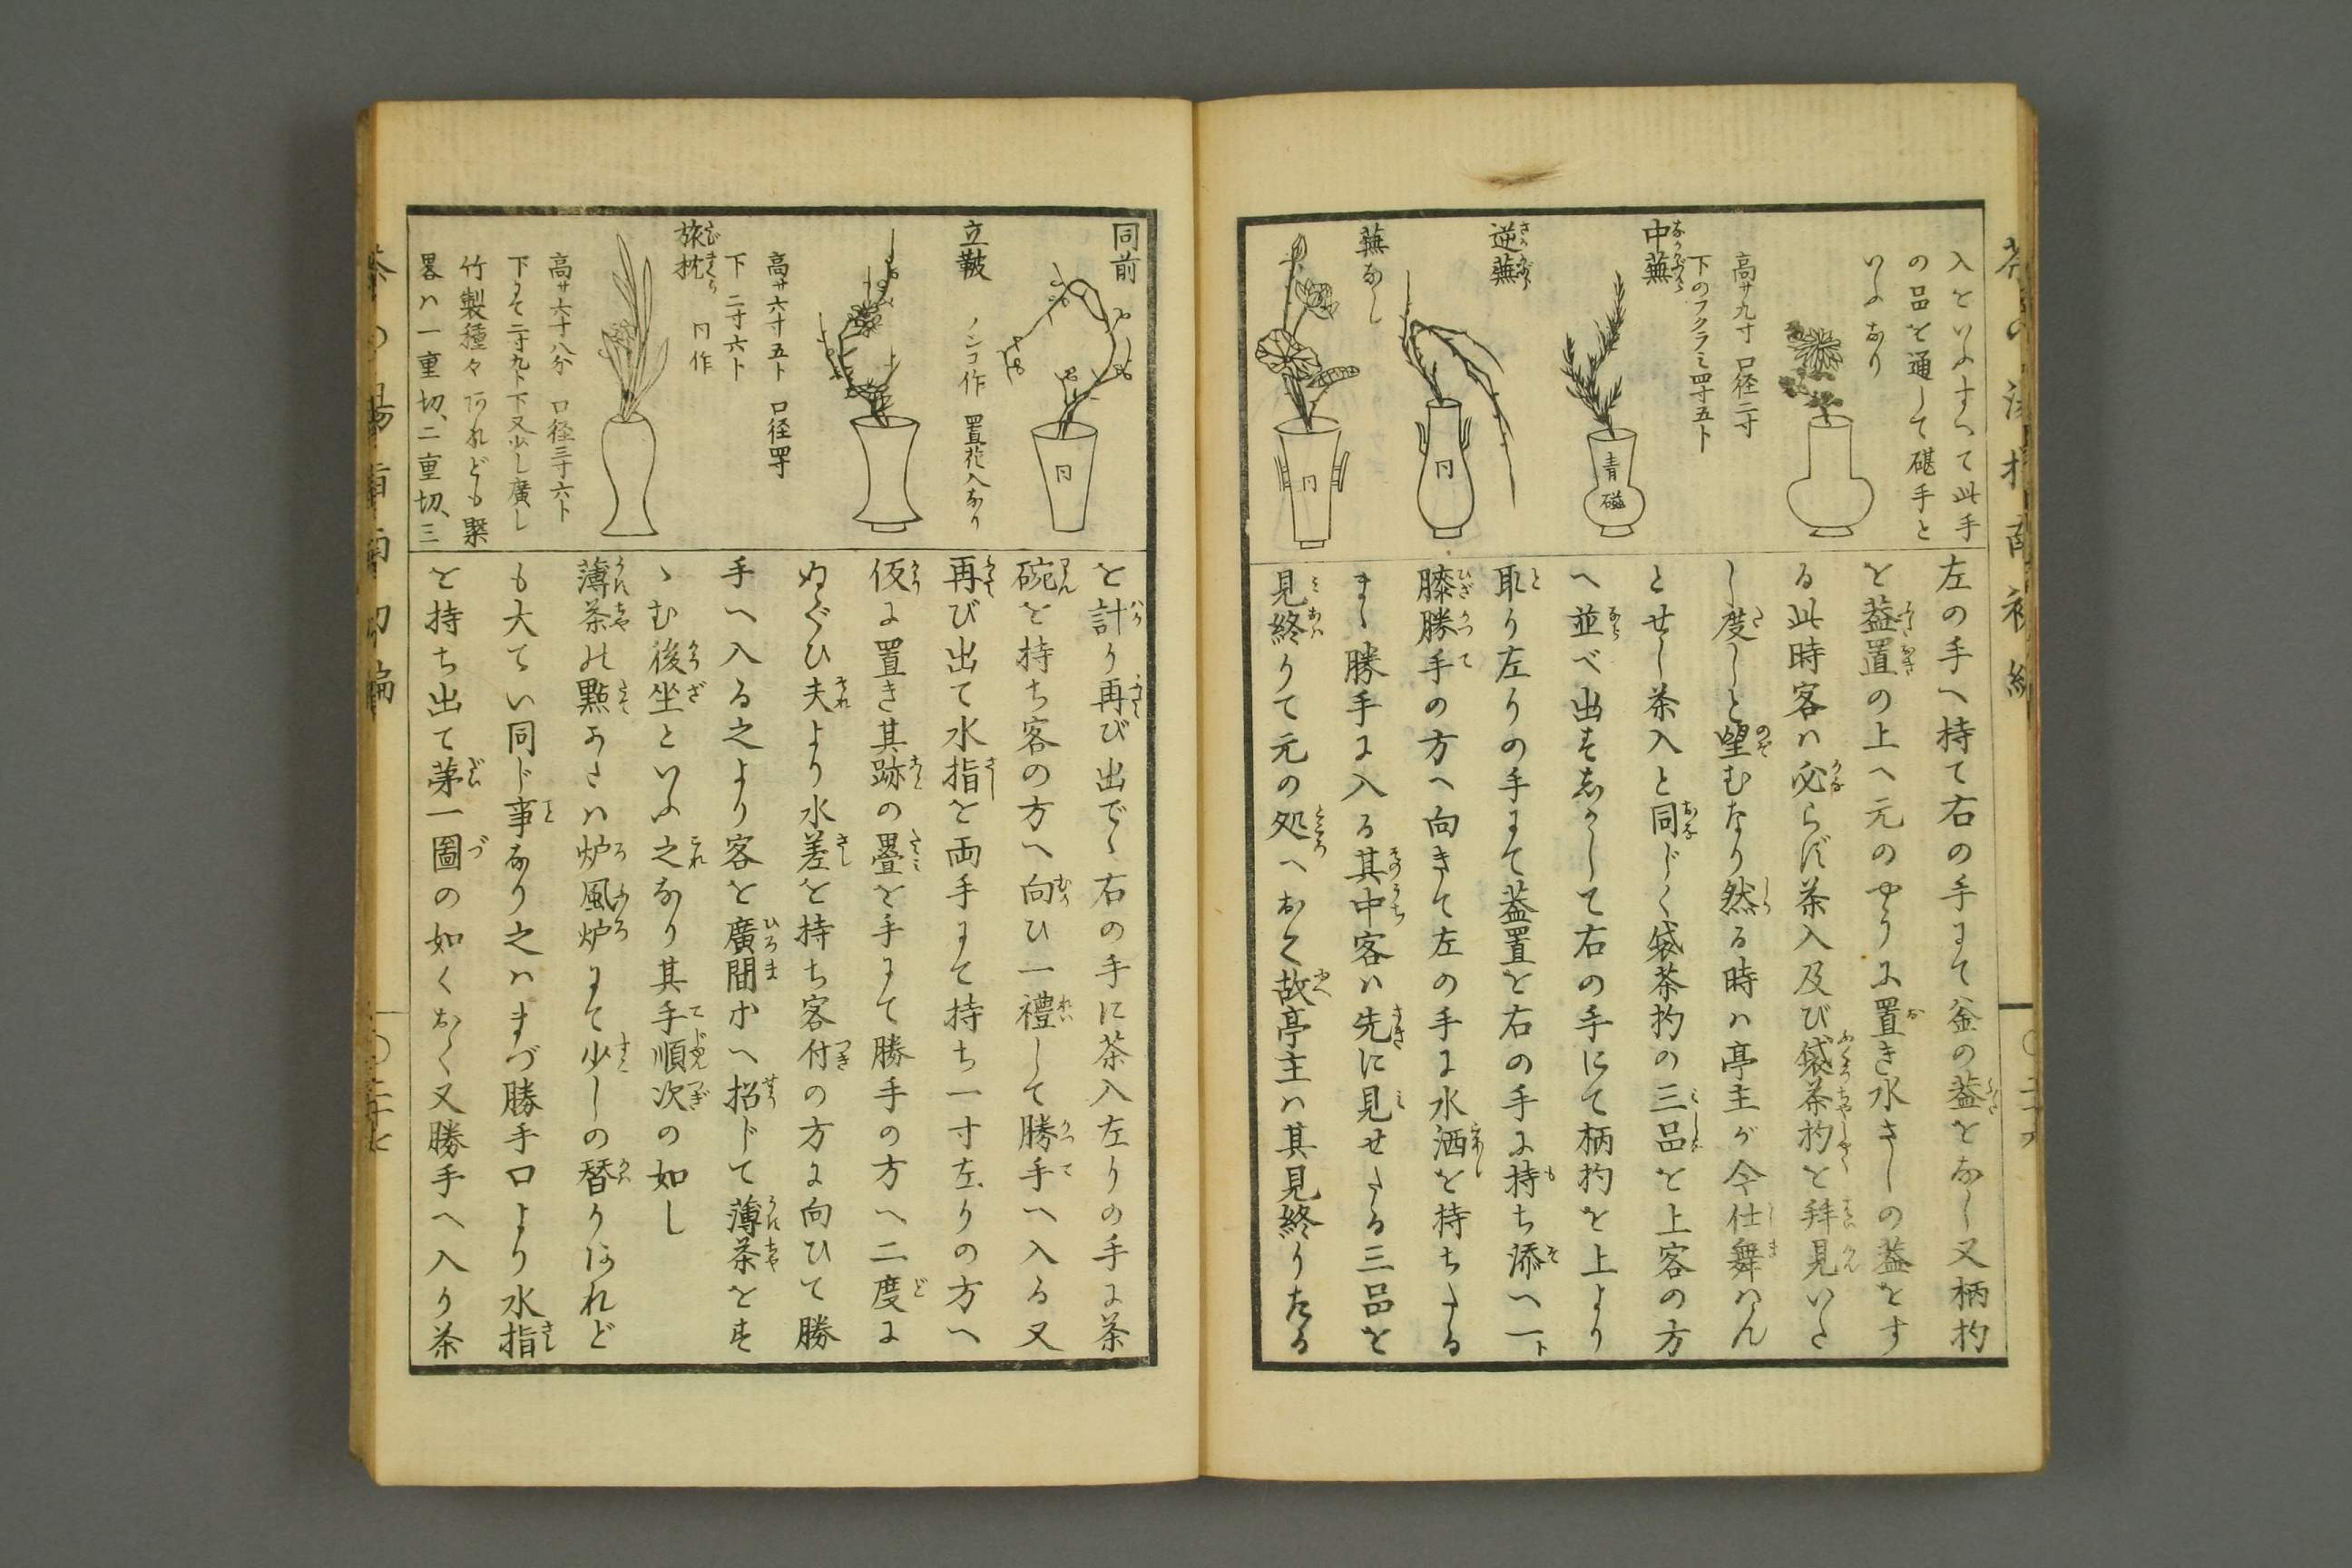 入といふすべて此手
の品を通して碪手と
いふなり
高サ九寸 口径二寸
下のフクラミ四寸五ト
中蕪
青磁
逆蕪
同
蕪なし
同
左の手へ持て右の手にて釜の蓋をなし又柄杓
を蓋置の上へ元のやうに置き水さしの蓋をす
る此時客ハ必らず茶入及び袋茶杓を拝見いた
し度しと望むなり然る時ハ亭主が今仕舞はん
とせし茶入と同じく袋茶杓の三品を上客の方
へ並べ出し置して右の手にて柄杓を上より
取り左りの手にて蓋置を右の手に持ち添へ一ト
膝勝手の方へ向きて左の手に水洒を持ちたる
まゝ勝手に入る其中客ハ先に見せたる三品を
見終りて元の処へおく故亭主ハ其見終りたる
同前
同
立鼓 ノンコ作 置花入なり
高サ六寸五ト 口径四寸
下 二寸六ト
旅枕 同作
高サ六寸八分 口径三寸六ト
下にて二寸九ト下又少し廣し
竹製種々あれども槩
畧ハ一重切、二重切、三
を計り再び出でゝ右の手に茶入左りの手に茶
碗を持ち客の方へ向ひ一禮して勝手へ入る又
再び出て水指を両手にて持ち一寸左りの方へ
仮に置き其跡の畳を手にて勝手の方へ二度に
ぬぐひ夫より水差を持ち客付の方に向ひて勝
手へ入る之より客を廣間か へ招じて薄茶をす
ゝむ後坐といふ之なり其手順次の如し
薄茶の點かたハ炉風炉にて少しの替りあれど
も大てい同じ事なり之ハまづ勝手口より水指
を持ち出て茅一圖の如くおく又勝手へ入り茶